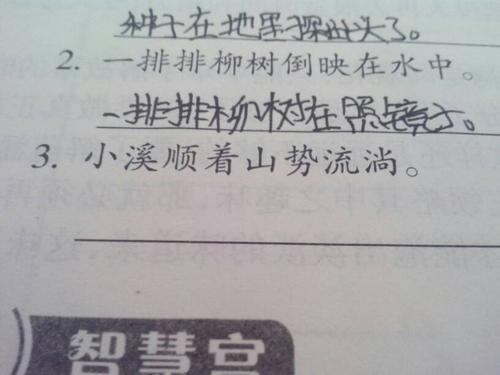 种子在地里探出头了。
2. 一排排柳树倒映在水中。
一排排柳树在照镜子。
3. 小溪顺着山势流淌。
智慧宫